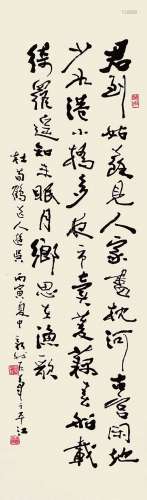 君到姑蘇見人家盡枕河古宮閑地
少水港小橋多夜市賣菱藕春船載
綺羅遙知未眠月鄉思在漁歌
杜荀鶴送人遊吳 丙寅夏中新我左筆于平江